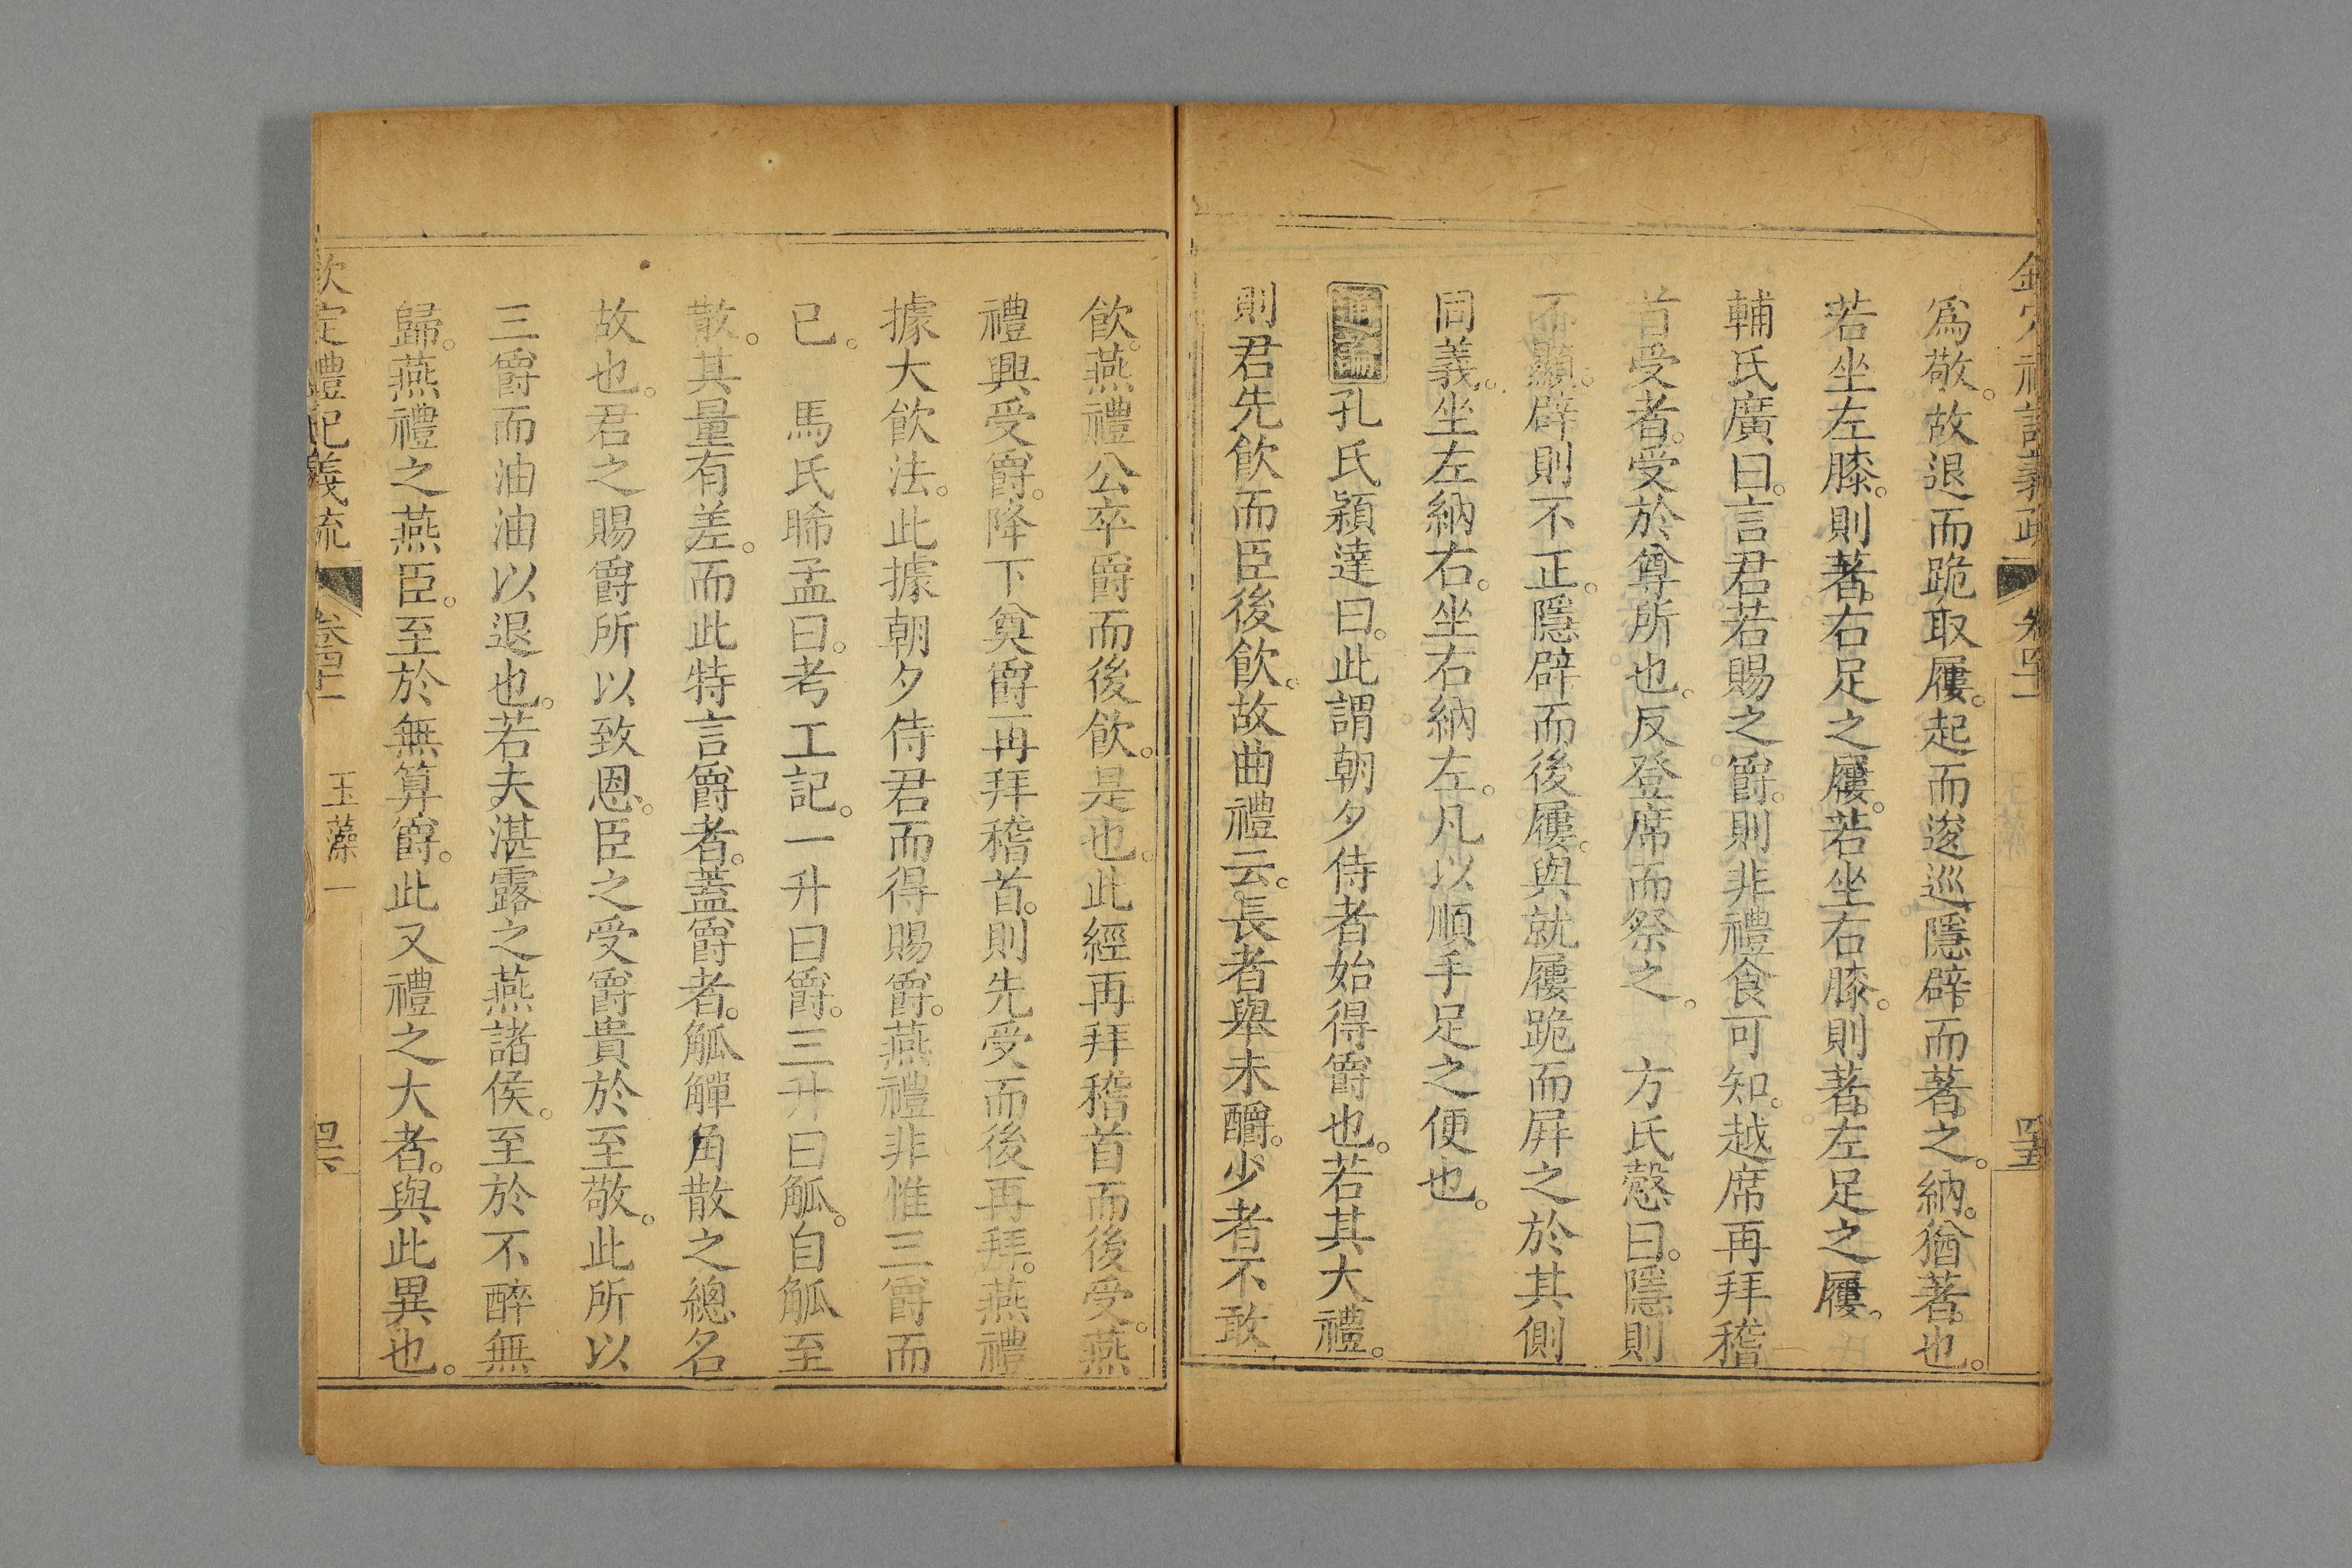 為敬。故退而跪取屨。起而逡巡隱辟。而著之。納。猶著也。
若坐左膝。則著右足之屨。若坐右膝。則著左足之屨。
輔氏廣曰。言君若賜之爵。則非禮食可知。越席再拜稽
首受者。受於尊所也。反登席而祭之。　方氏慤曰。隱則
不顯。辟則不正。隱辟而後屨。與就屨跪而屏之於其側
同義。坐左納右。坐右納左。凡以順手足之便也。
通論孔氏穎達曰。此謂朝夕侍者始得爵也。若其大禮。
則君先飲而臣後飲。故曲禮云。長者舉未釂。少者不敢
飲。燕禮公卒爵而後飲。是也。此經再拜稽首而後受。燕
禮興受爵。降下奠爵再拜稽首。則先受而後再拜。燕禮
據大飲法。此據朝夕侍君而得賜爵。燕禮非惟三爵而
已。　馬氏晞孟曰。考工記。一升曰爵。三升曰觚。自觚至
散。其量有差。而此特言爵者。蓋爵者。觚觶角散之總名
故也。君之賜爵所以致恩。臣之受爵貴於至敬。此所以
三爵而油油以退也。若夫湛露之燕諸侯。至於不醉無
歸。燕禮之燕臣。至於無算爵。此又禮之大者。與此異也。
欽定禮記義疏
玉藻一